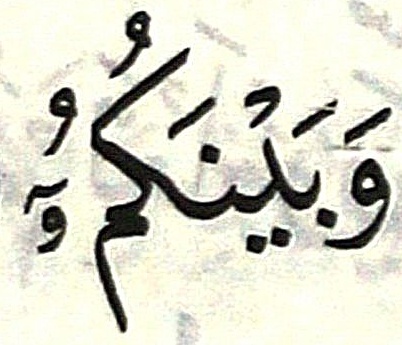 وَبَيْنَكُمُۥٓ